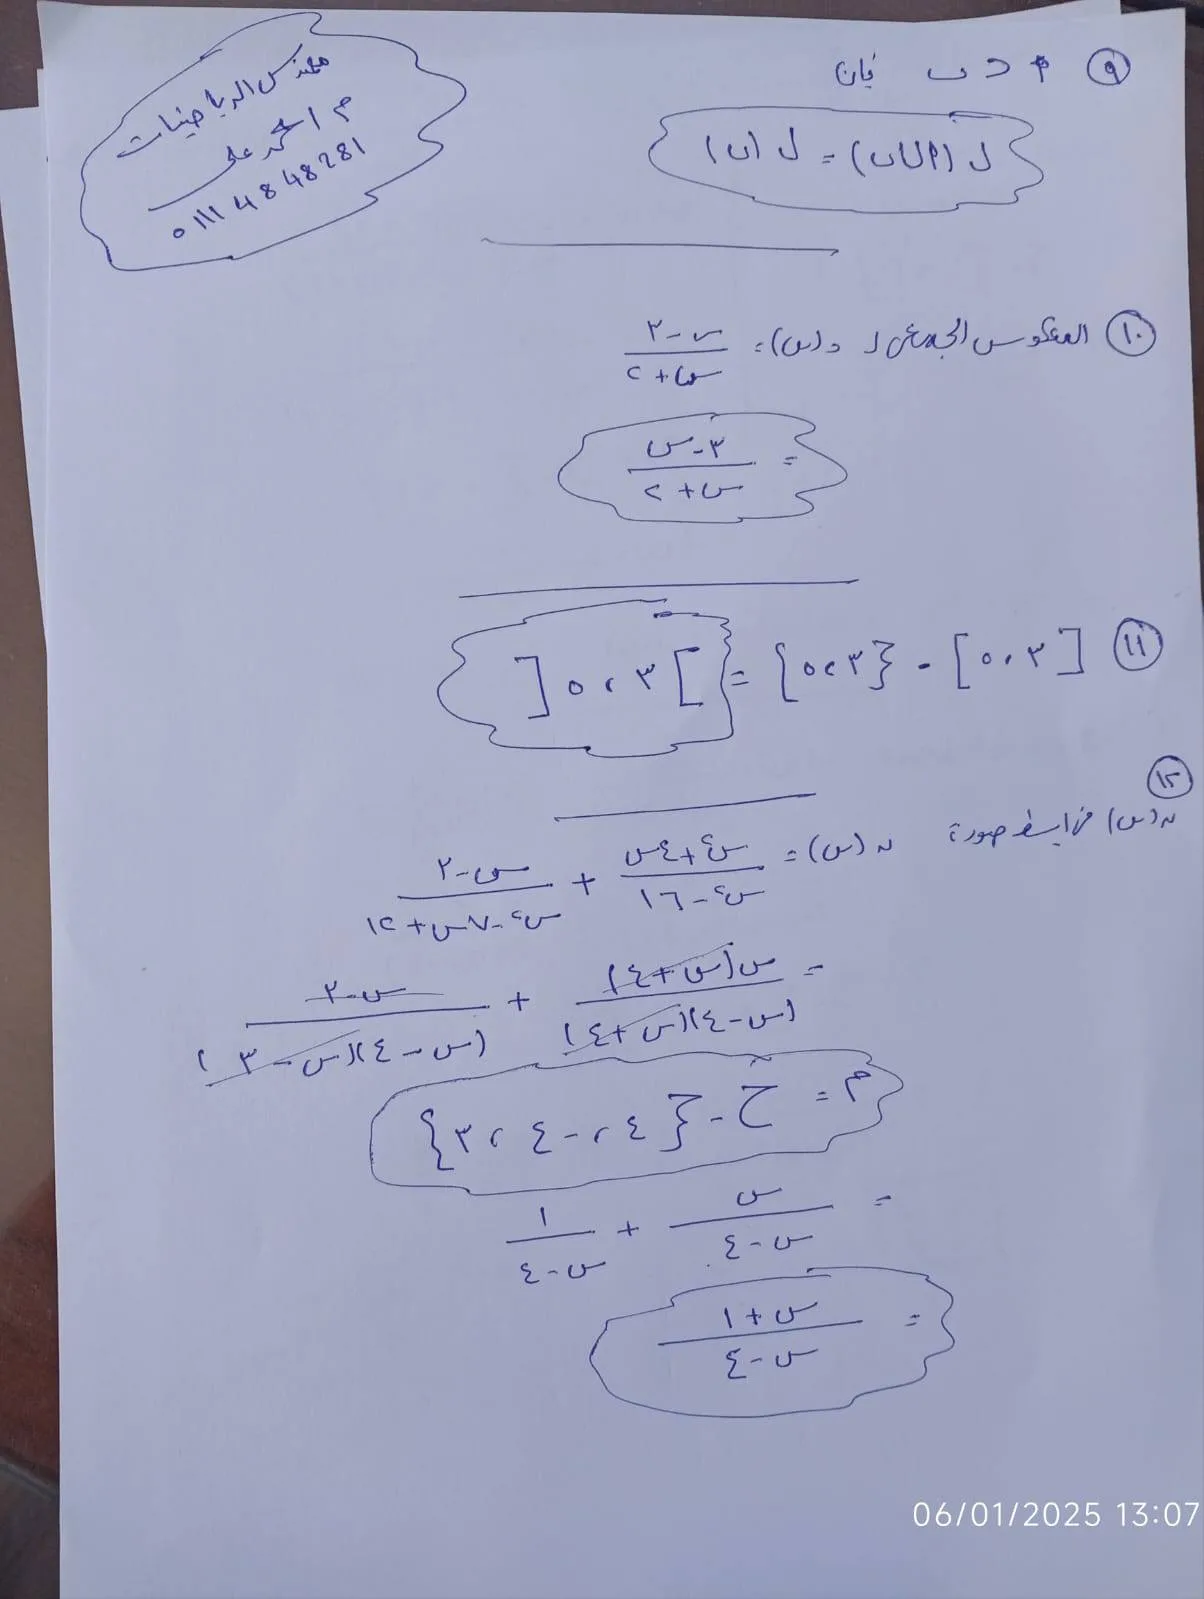 مهندس الرياضيات
م / محمد علي
01114848281
٩ م ⊂ ب فإن
ل (م∪ب) = ل (ب)
١٠ المعكوس الجمعي لـ د(س) = (س-٣)/(س+٢)
= (٣-س)/(س+٢)
١١ [٣، ٥] - {٣، ٥} = ]٣، ٥[
١٢
ن(س) في ابسط صورة ن(س) = (س٢+٤س)/(س٢-١٦) + (س-٣)/(س٢-٧س+١٢)
= س(س+٤)/(س-٤)(س+٤) + (س-٣)/(س-٤)(س-٣)
م = ح - {٤، -٤، ٣}
= س/(س-٤) + ١/(س-٤)
= (س+١)/(س-٤)
06/01/2025 13:07